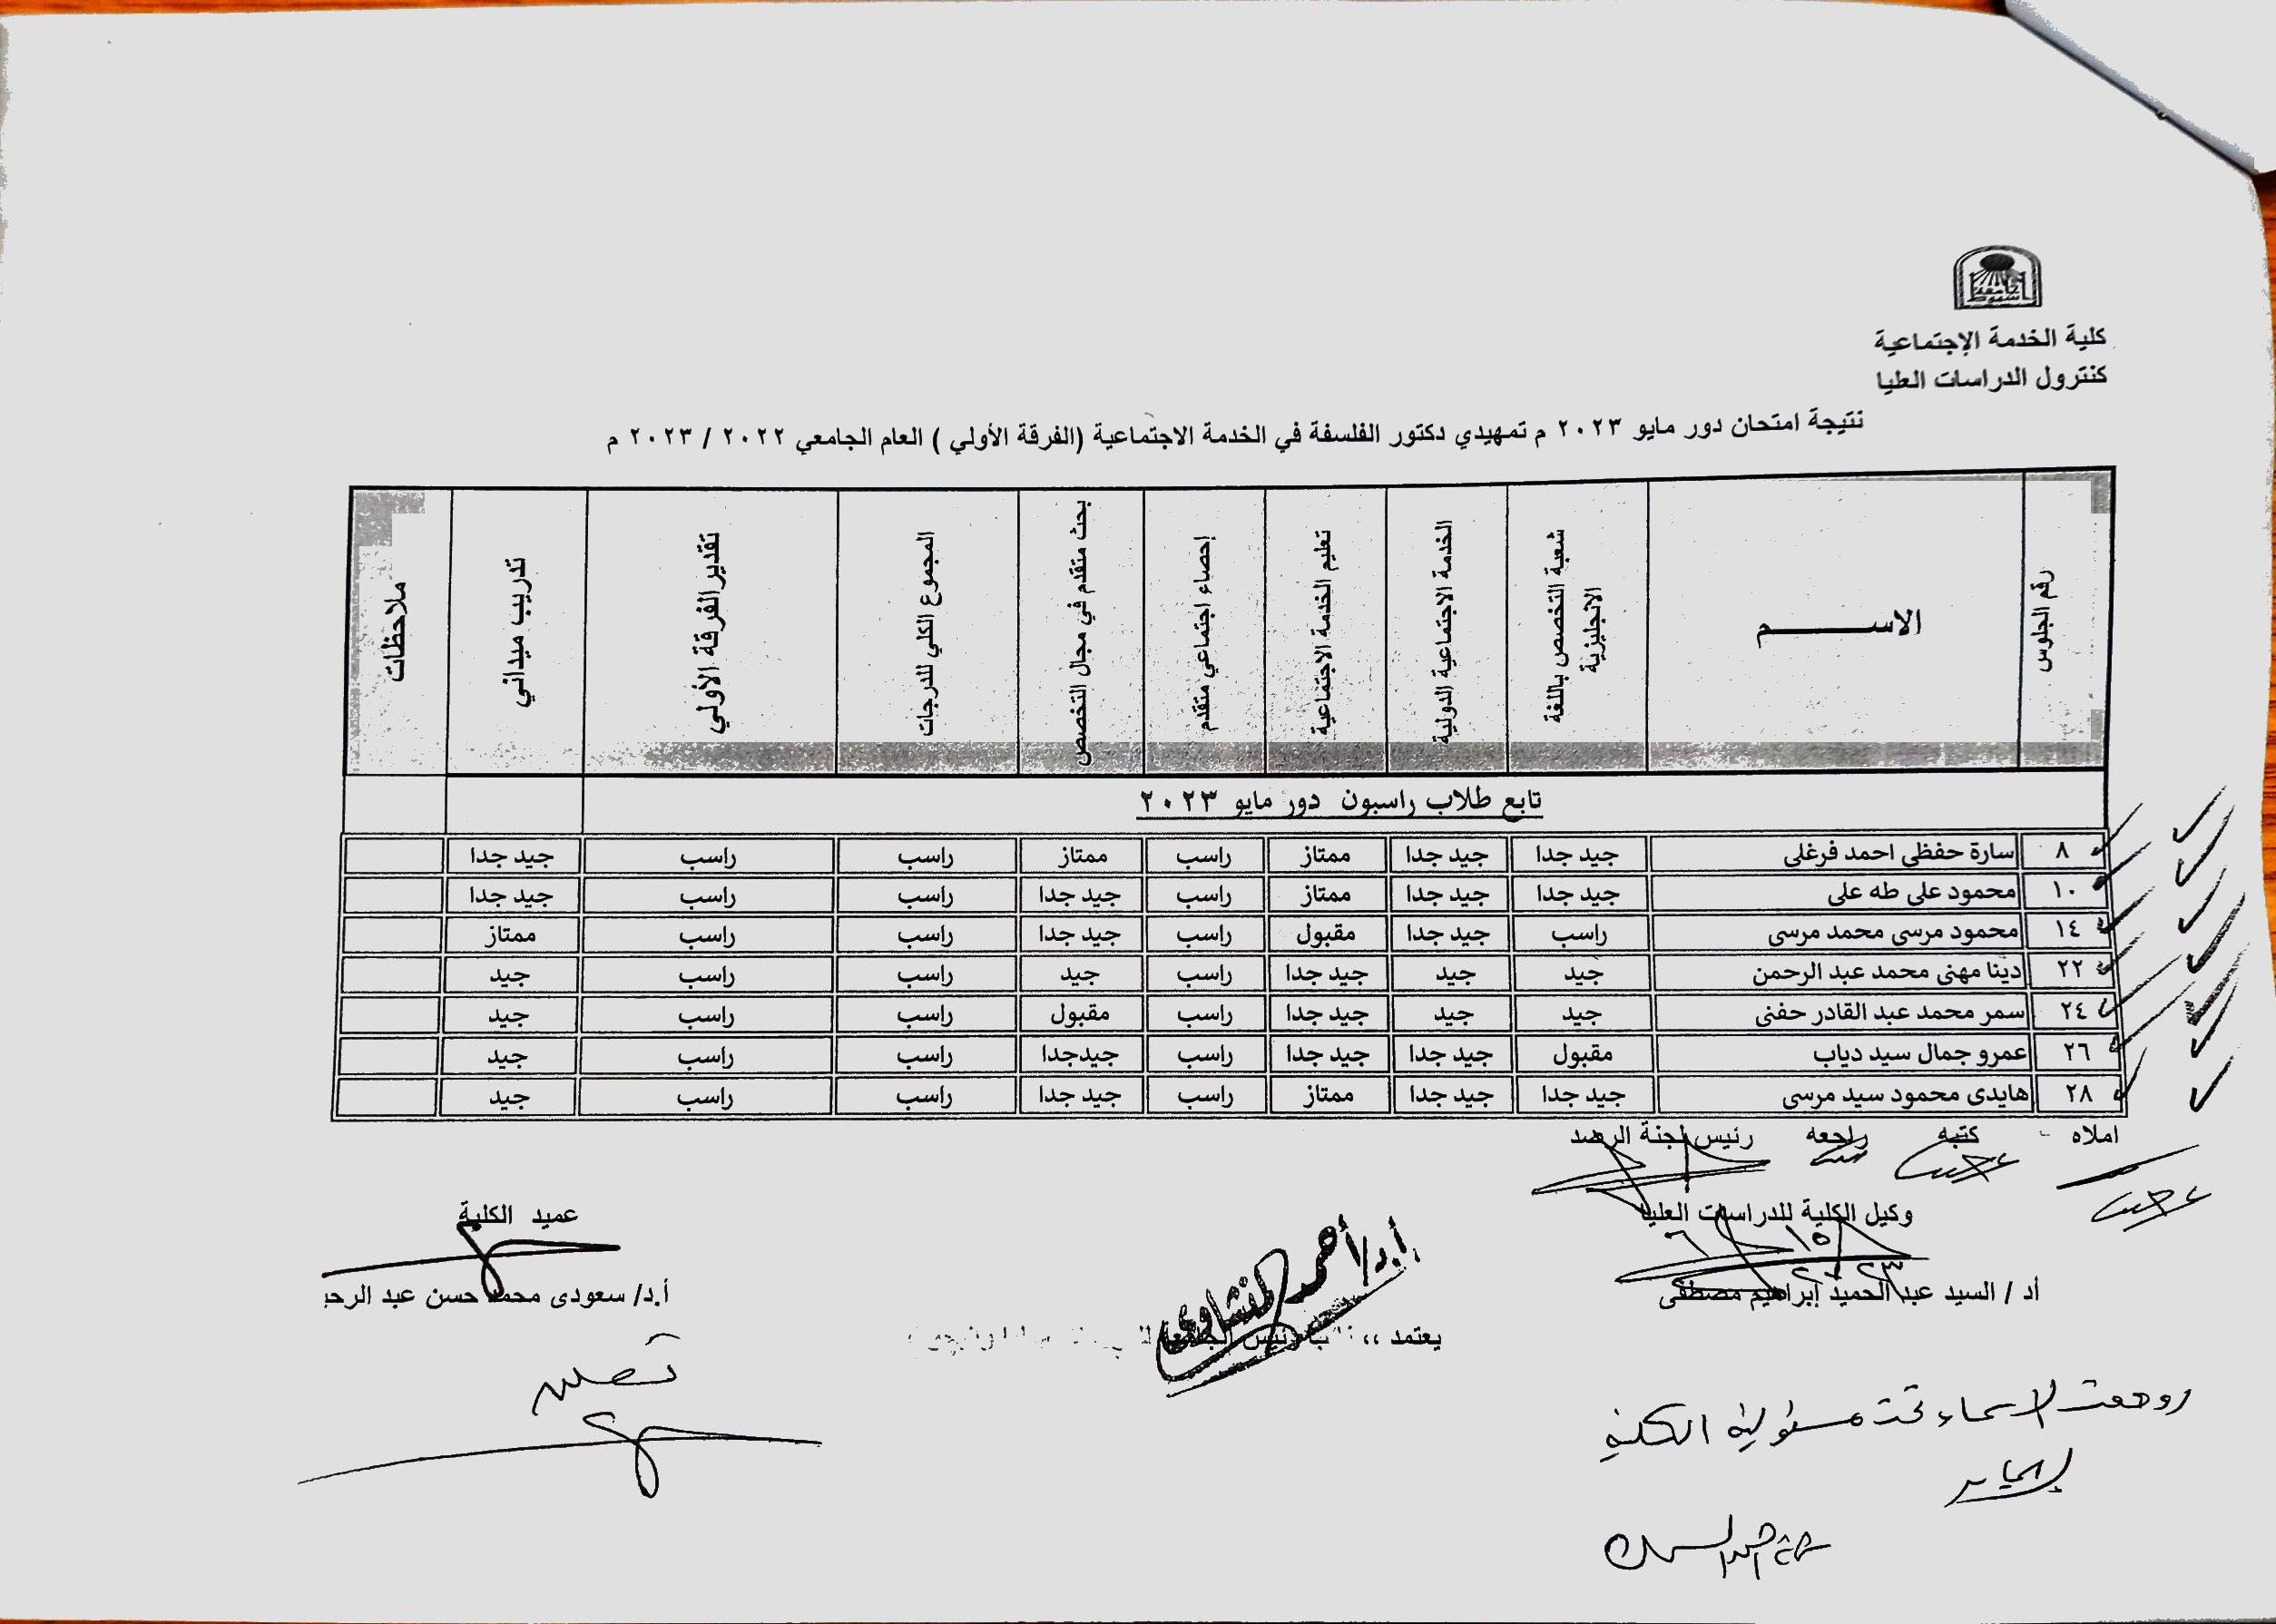 جامعة أسيوط
كلية الخدمة الإجتماعية
كنترول الدراسات العليا
نتيجة امتحان دور مايو ٢٠٢٣ م تمهيدي دكتور الفلسفة في الخدمة الاجتماعية (الفرقة الأولي ) العام الجامعي ٢٠٢٢ / ٢٠٢٣ م
رقم الجلوس الاســـــم شعبة التخصص باللغة الانجليزية الخدمة الاجتماعية الدولية تعليم الخدمة الاجتماعية إحصاء اجتماعي متقدم بحث متقدم في مجال التخصص المجموع الكلي للدرجات تقدير الفرقة الأولي تدريب ميداني ملاحظات
تابع طلاب راسبون دور مايو ٢٠٢٣
٨ سارة حفظى احمد فرغلى جيد جدا جيد جدا ممتاز راسب ممتاز راسب راسب جيد جدا
١٠ محمود على طه على جيد جدا جيد جدا ممتاز راسب جيد جدا راسب راسب جيد جدا
١٤ محمود مرسى محمد مرسى راسب جيد جدا مقبول راسب جيد جدا راسب راسب ممتاز
٢٢ دينا مهنى محمد عبد الرحمن جيد جيد جيد جدا راسب جيد راسب راسب جيد
٢٤ سمر محمد عبد القادر حفنى جيد جيد جيد جدا راسب مقبول راسب راسب جيد
٢٦ عمرو جمال سيد دياب مقبول جيد جدا جيد جدا راسب جيدجدا راسب راسب جيد
٢٨ هايدى محمود سيد مرسى جيد جدا جيد جدا ممتاز راسب جيد جدا راسب راسب جيد
املاه كتبه راجعه رئيس لجنة الرصد
وكيل الكلية للدراسات العليا عميد الكلية
أد / السيد عبد الحميد إبراهيم مصطفى أ.د/ سعودى محمد حسن عبد الرحي
أ.د/ أحمد المنشاوي
يعتمد ،،
روجعت الاسماء تحت مسئولية الكلية